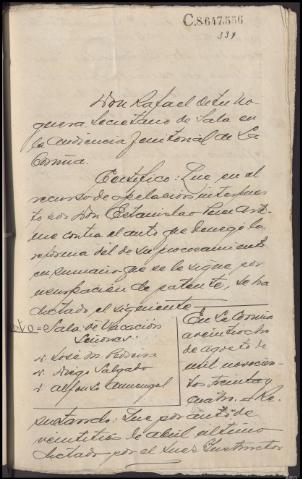 C.8.647.556
339
Don Rafael
Secretario de Sala en
la Audiencia Territorial de La
Coruña.
Certifico: Que en el
recurso de apelación interpues-
to por Don Estanislao
contra el auto que denegó la
reforma del de su procesamiento
en sumario que se le sigue por
de patente, se ha
dictado el siguiente
=Sala de Vacación
Señores
José
Salgado
Alfonso
En La Coruña
a veintiocho
de agosto de
mil novecien-
tos treinta y
cuatro. = Re-
sultando: Que por auto de
veintitrés de abril último
dictado por el Juez Instructor